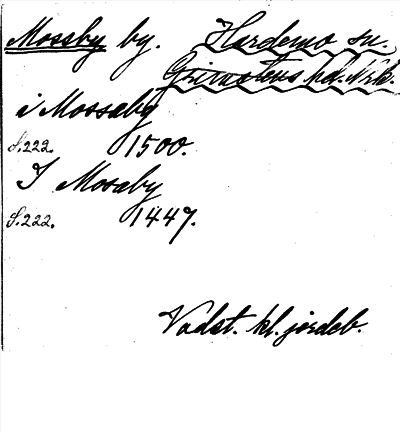 Mossby by. Hardemo sn.
Grimstens hd. Nrk.
i Mossaby
S. 222. 1500.
I Mosaby
S. 222. 1447.
Vadst. kl. jordeb.